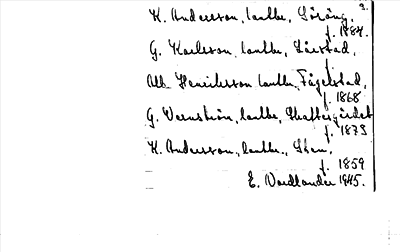 3.
K. Andersson, lantbr., Söräng,
f. 1884.
G. Karlsson, lantbr.,
f.
Alb. Henriksson lantbr., Fågelstad,
f. 1868
G. Wernström, lantbr., Skattegärdet
f. 1873
K. Andersson, lantbr., Sten,
f. 1859
E. Nordlander 1945.